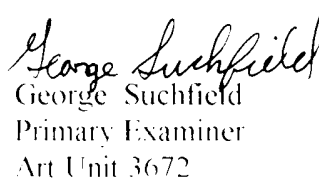 George Suchfield
George Suchfield
Primary Examiner
Art Unit 3672